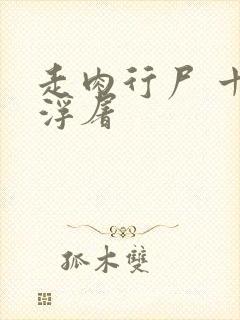 走肉行尸 十
浮屠
孤木雙